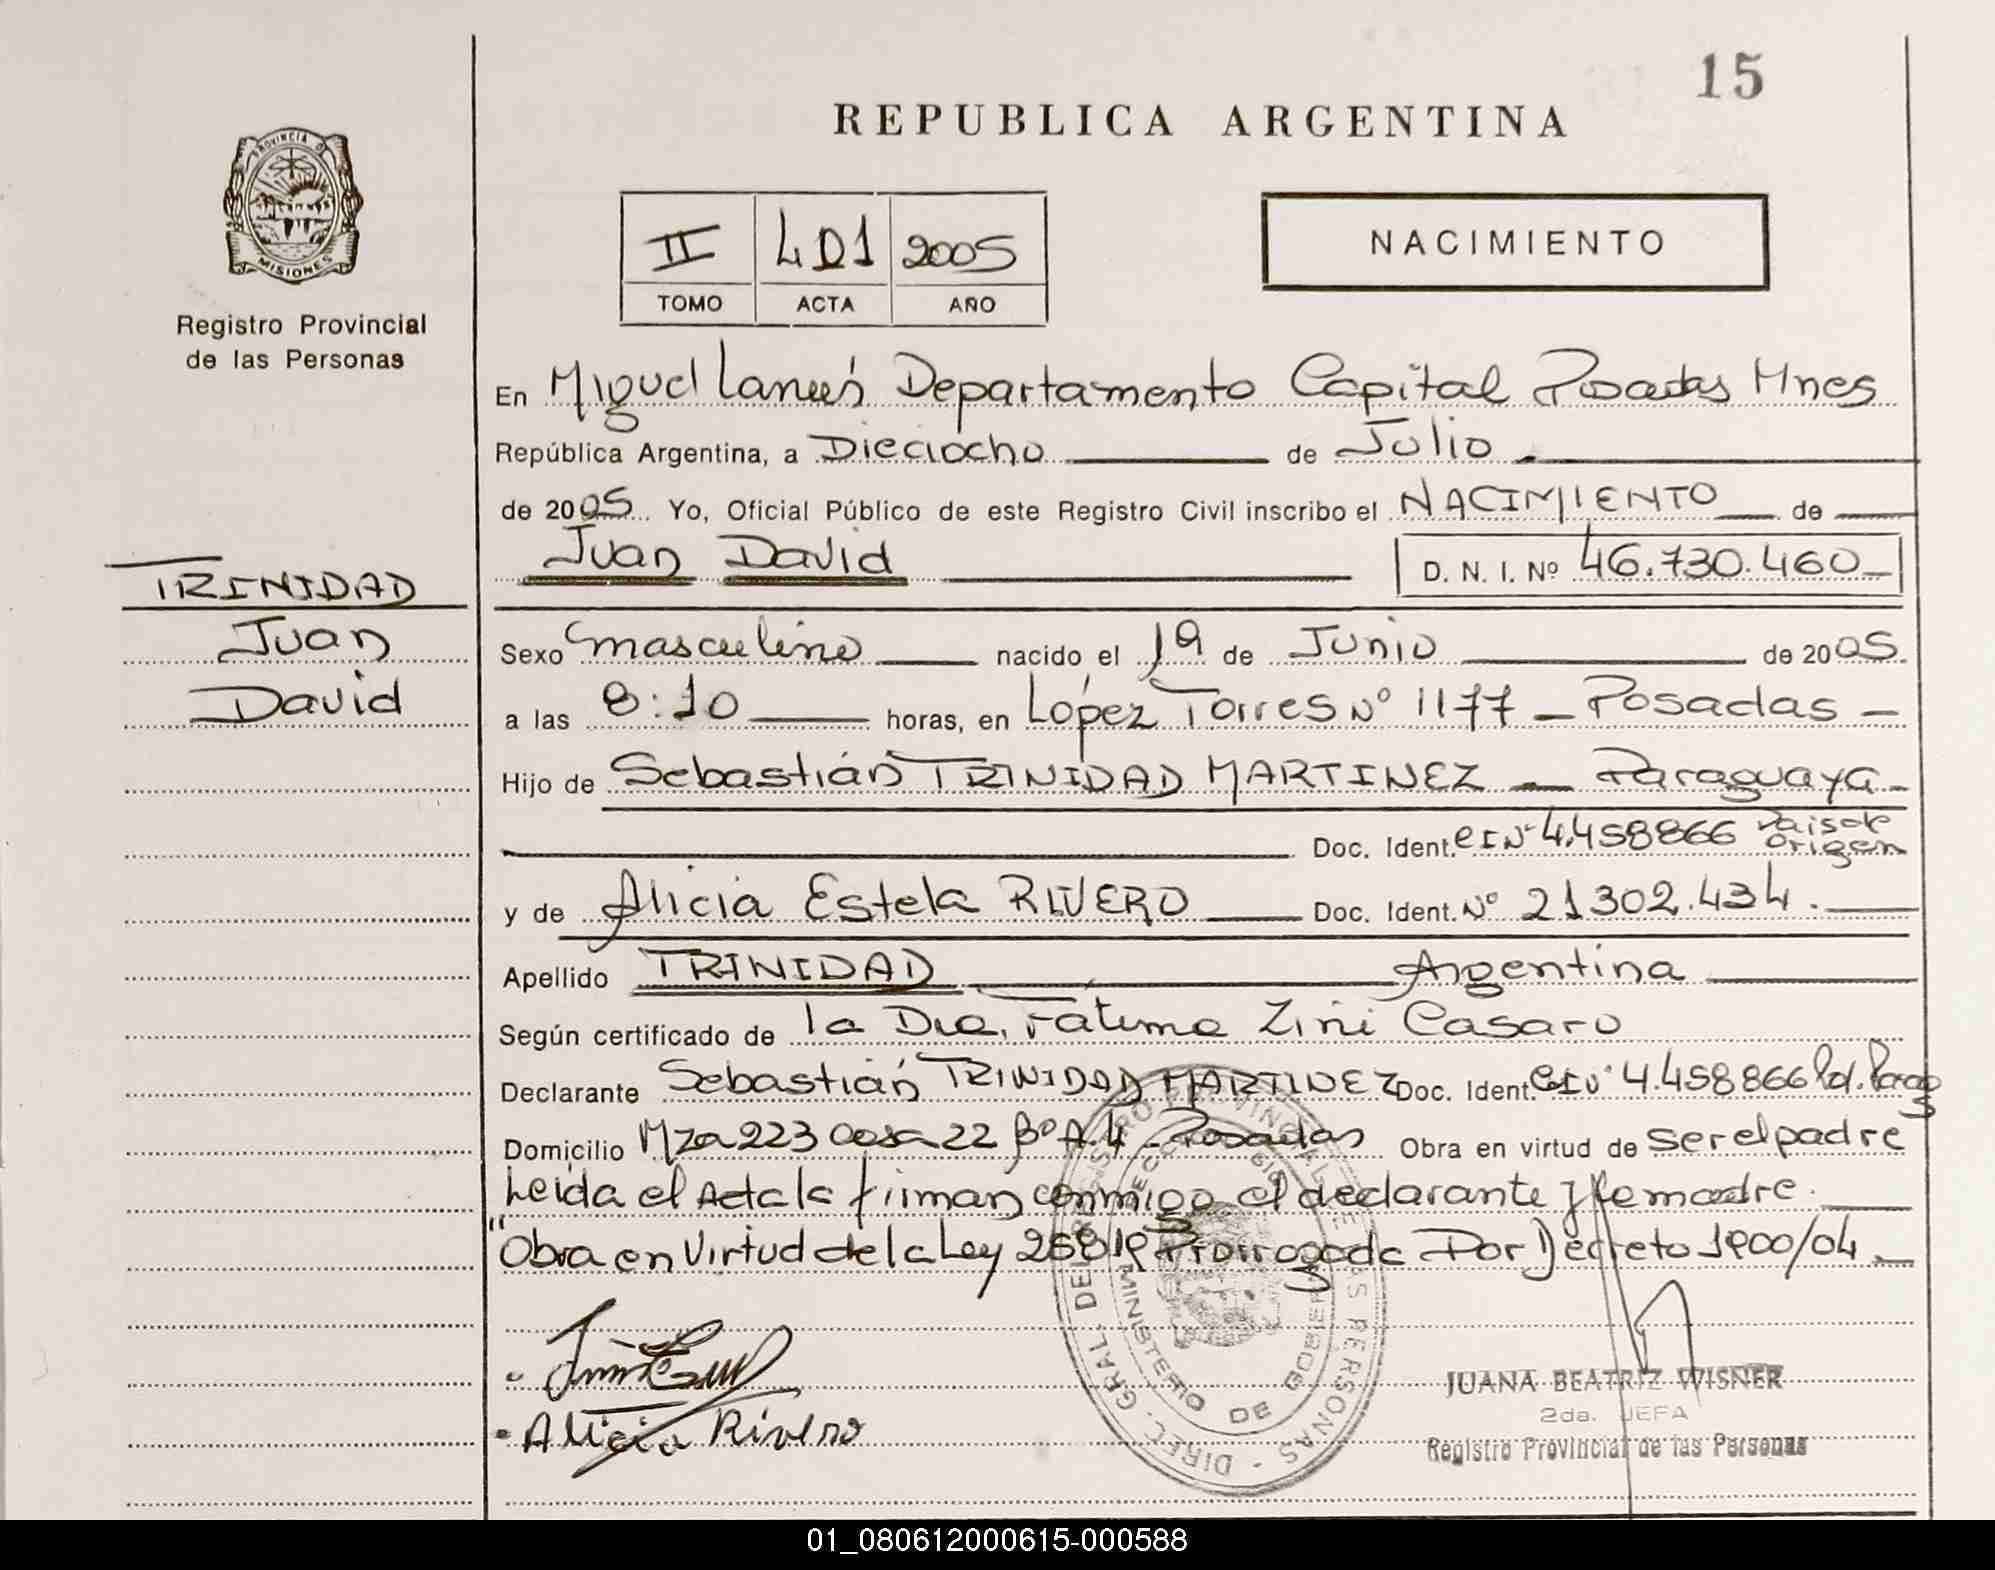 15
REPUBLICA ARGENTINA
PROVINCIA DE
MISIONES
Registro Provincial
de las Personas
II 401 2005
TOMO ACTA AÑO
NACIMIENTO
En Miguel Lanús Departamento Capital Posadas Mnes
República Argentina, a Dieciocho de Julio
de 2005 Yo, Oficial Público de este Registro Civil inscribo el NACIMIENTO de
Juan David D. N. I. Nº 46.730.460
TRINIDAD
Juan
David
Sexo masculino nacido el 19 de Junio de 2005.
a las 8:10 horas, en López Torres Nº 1177 - Posadas -
Hijo de Sebastián TRINIDAD MARTINEZ - Paraguaya -
Doc. Ident. CI Nº 4.458866 Pais de Origen
y de Alicia Estela RIVERO Doc. Ident. Nº 21302.434.
Apellido TRINIDAD Argentina
Según certificado de la Dra. Fátima Zini Casaro
Declarante Sebastián TRINIDAD MARTINEZ Doc. Ident. CI Nº 4.458866 Pol. Parag
Domicilio Mza 223 casa 22 Bº A.4 - Posadas Obra en virtud de ser el padre
Leida el Acta la firman conmigo el declarante y la madre.
"Obra en Virtud de la Ley 25819 Prorrogada Por Decreto 1900/04
Alicia Rivero
DIREC. GRAL. DEL REGISTRO PROVINCIAL DE LAS PERSONAS
MINISTERIO DE GOBIERNO
JUANA BEATRIZ WISNER
2da. JEFA
Registro Provincial de las Personas
01_080612000615-000588